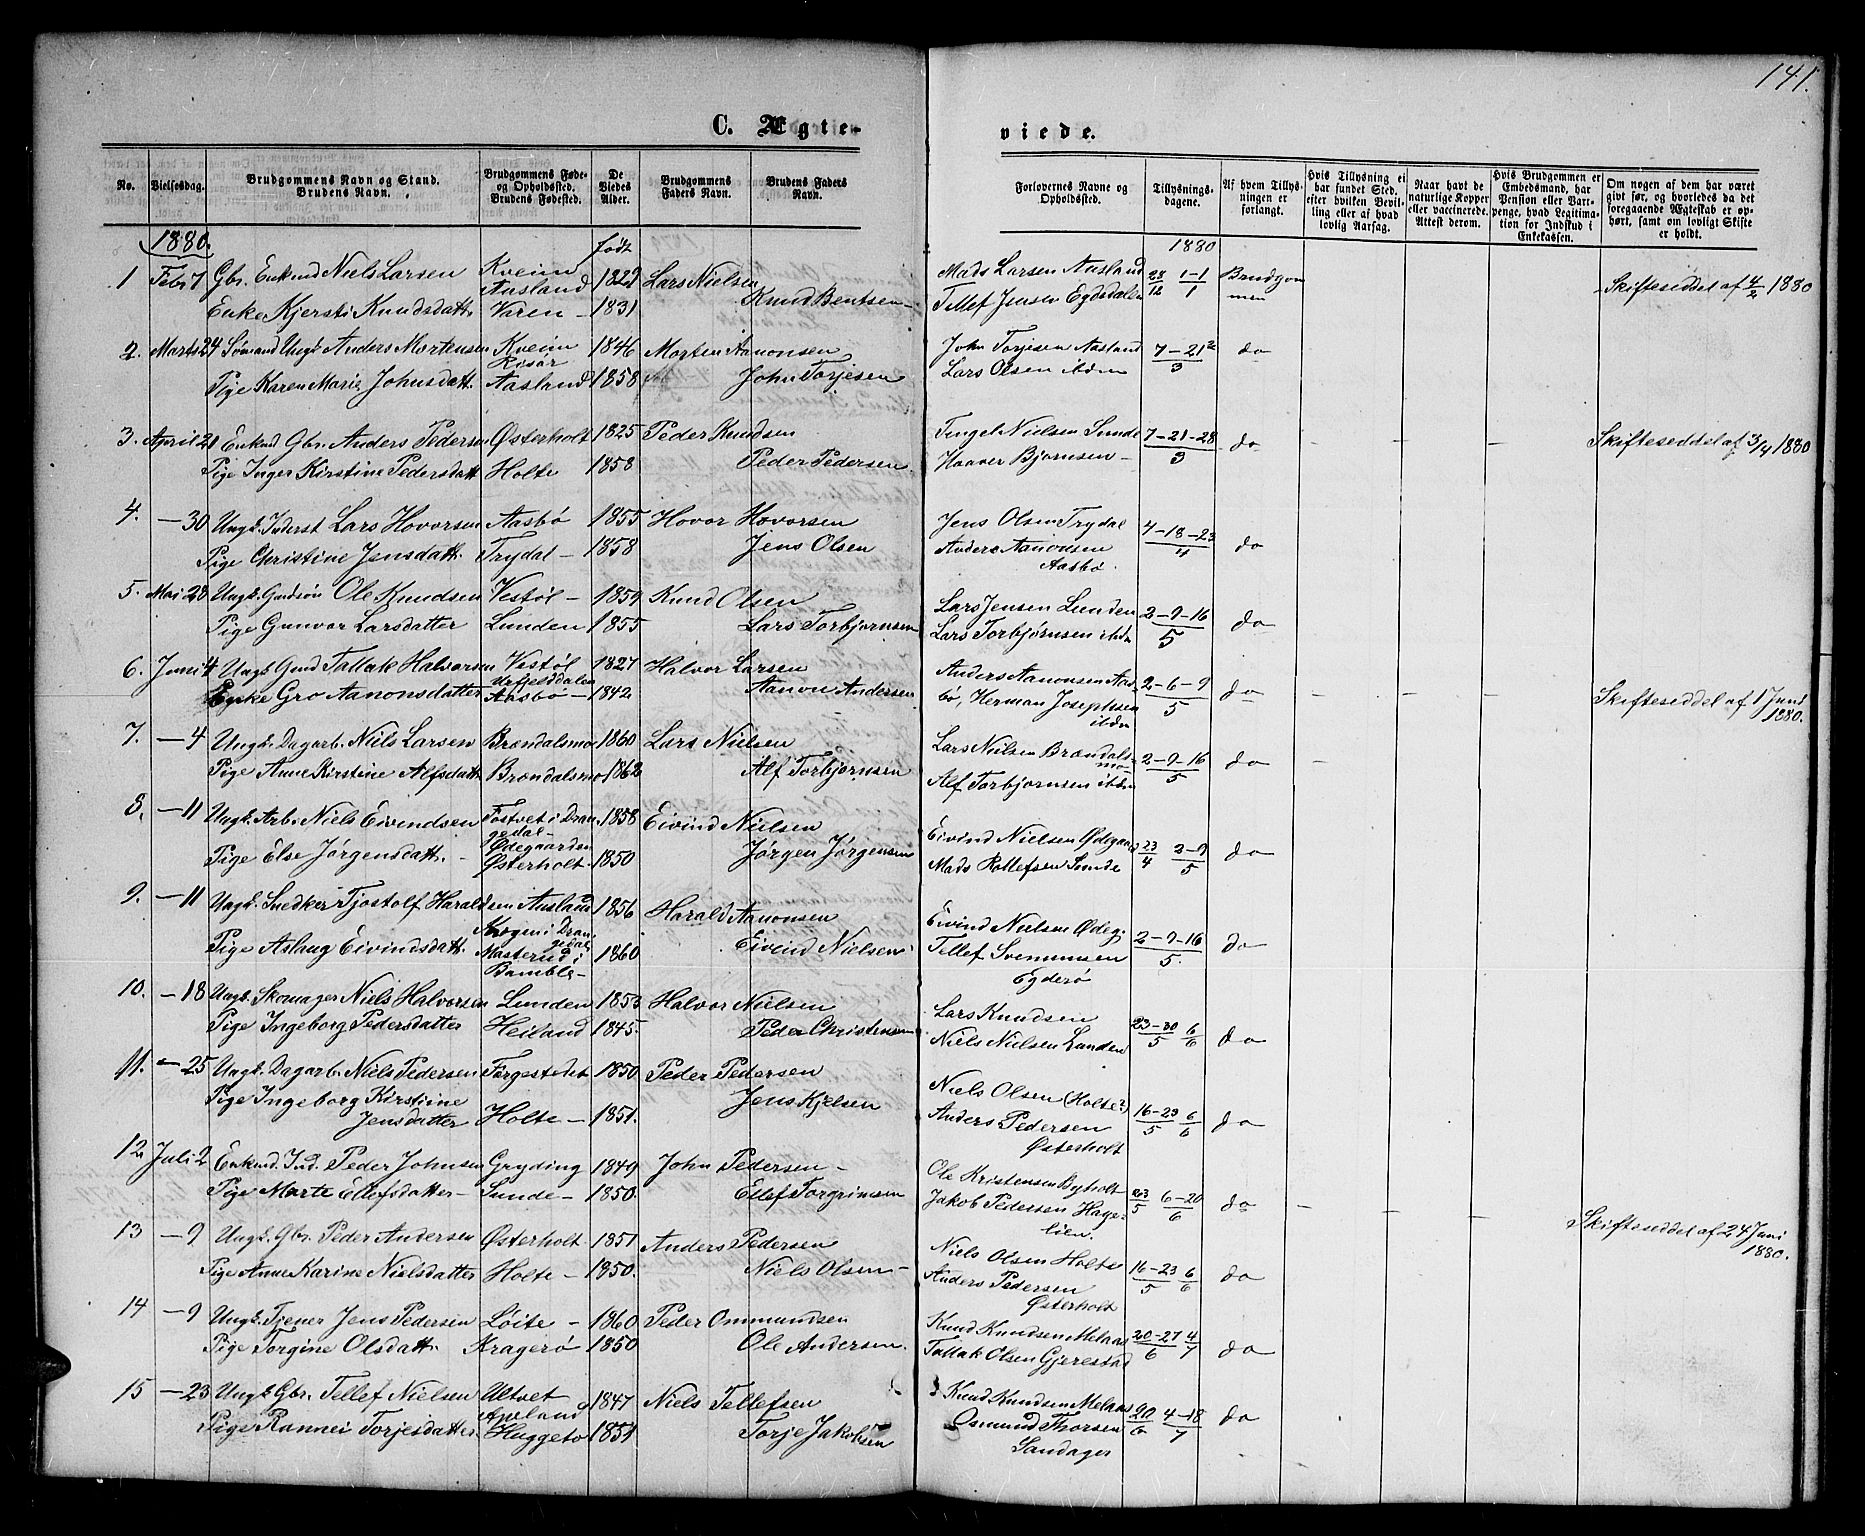 141.
C. Ægte-
viede.
No.
Vielsesdag.
Brudgommens Navn og Stand.
Brudens Navn.
Brudgommens Føde-
og Opholdsted.
Brudens Fødested.
De
Viedes
Alder.
Brudgommens
Faders Navn.
Brudens Faders
Navn.
Forlovernes Navne og
Opholdsted.
Tillysnings-
dagene.
Af hvem Tillys-
ningen er
forlangt.
Hvis Tillysning ei
har fundet Sted,
efter hvilken Bevil-
ling eller af hvad
lovlig Aarsag.
Naar havt de
naturlige Kopper
eller vaccinerede.
Attest derom.
Hvis Brudgommen er
Embedsmand, har
Pension eller Vart-
penge, hvad Legitima-
tion for Indskud i
Enkekassen.
Om nogen af dem har været
gift før, og hvorledes da det
foregaaende Ægteskab er op-
hørt, samt om lovligt Skifte
er holdt.
1880.
født
1880
1 Feb 7 Gbr. Enkmd Niels Larsen Kveim Aasland 1829 Lars Nielsen
Enke Kjersti Knudsdatt. Varen - 1831 Knud Bentsen -
Mads Larsen Aasland 28/12 1-1/1 Brudgom
Tellef Jensen Egdsdalen men
Skifteseddel af 4/2 1880
2. Marts 24 Sømand Ungk. Anders Mortensen Kveim Risør 1846 Morten Aanonsen
Pige Karen Marie Johnsdatt. Aasland 1858 John Torjesen
John Torjesen Aasland 7-21/3 do
Lars Olsen ibdm
3. April 21 Enkmd Gbr. Anders Pedersen Østerholt 1825 Peder Knudsen
Pige Inger Kirstine Pedersdatt Holte 1858 Peder Pedersen
Tengel Nielsen Sunde 7-21-28/3 do - - -
Haaver Bjørnsen -
Skifteseddel af 3/4 1880
4. - 30 Ungk. Inderst Lars Hovorsen Aasbø 1855 Hovor Hovorsen
Pige Christine Jensdatt. Trydal - 1858 Jens Olsen
Jens Olsen Trydal 4-18-23/4 do
Anders Aanonsen
Aasbø.
5. Mai 28 Ungk. Gaardsøn Ole Knudsen Vestøl - 1859 Knud Olsen
Pige Gunvor Larsdatter Lunden 1855 Lars Torbjørnsen
Lars Jensen Lunden 2-9-16/5 do
Lars Torbjørnsen ibdm
6. Juni 4 Ungk. Gmd Tallak Halvorsen Vestøl 1827 Halvor Larsen
Enke Gro Aanonsdatter Aasbø - 1842 Aanon Andersen
Anders Aanonsen Aas- 2-6-9/5 do - - -
bø, Herman Josephsen
ibdm
Skifteseddel af 1 Juni
1880.
7. - 4 Ungk. Dagarb. Niels Larsen Brændalsmo 1860 Lars Nielsen
Pige Anne Kirstine Alfsdatt. Brændalsmo 1862 Alf Torbjørnsen
Lars Nielsen Brændals- 2-9-16/5 do
mo
Alf Torbjørnsen ibdm
8. - 11 Ungk. Arb. Niels Eivindsen Tostvet i Dran- 1858 Eivind Nielsen
gedal-
Ødegaarden
Pige Else Jørgensdatt. - Østerholt. 1850 Jørgen Jørgensen
Eivind Nielsen Ødegaard 23/4 2-9/5 do
Mads Rollefsen Sunde
9. - 11 Ungk. Snedker Tjostolf Haraldsen Aasland 1856 Harald Aanonsen
i Dran-
gedal
Pige Aslaug Eivindsdatt. Masterud i 1860 Eivind Nielsen
Bamble -
Eivind Nielsen Ødeg. 2-9-16/5. do
Tellef Svenumsen
Egderø
10. - 18 Ungk. Skomager Niels Halvorsen Lunden 1853 Halvor Nielsen
Pige Ingeborg Pedersdatter Heiland 1845. Peder Christensen
Lars Knudsen 23-30/5 6/6 do
Niels Nielsen Lunden
11. - 25 Ungk. Dagarb. Niels Pedersen Færgestedet 1850 Peder Pedersen
Pige Ingeborg Kirstine
Jensdatter Holte - 1851. Jens Kjelsen
Niels Olsen (Holte?) 16-23/5 6/6 do
Anders Pedersen
Østerholt
12. Juli 2 Enkmd. Ind. Peder Johnsen Gryding 1849 John Pedersen -
Pige Marte Ellefsdatter - Sunde - 1850. Ellef Torgrimsen
Ole Kristensen Byholt 23/5 6-20/6 do - - -
Jakob Pedersen Hage-
lien.
Skifteseddel af 24 Juni
1880.
13 - 9 Ungk. Gbr. Peder Andersen Østerholt 1851 Anders Pedersen
Pige Anne Karine Nielsdatter Holte - 1850. Niels Olsen -
Niels Olsen Holte 16-23/5 6/6 do
Anders Pedersen
Østerholt
14 - 9 Ungk. Tjener Jens Pedersen Løite - 1860 Peder Ommundsen
Pige Torgine Olsdatt. Kragerø 1850 Ole Andersen.
Knud Knudsen Melaas 20-27/6 4/7 do
Tallak Olsen Gjerestad
15 - 23 Ungk. Gbr. Tellef Nielsen Utvet Apeland 1847 Niels Tellefsen
Pige Rannei Torjesdatter Huggeto 1851 Torje Jakobsen
Knud Knudsen Melaas 20/6 4-18/7 do
Osmund Thorsen
Sandager